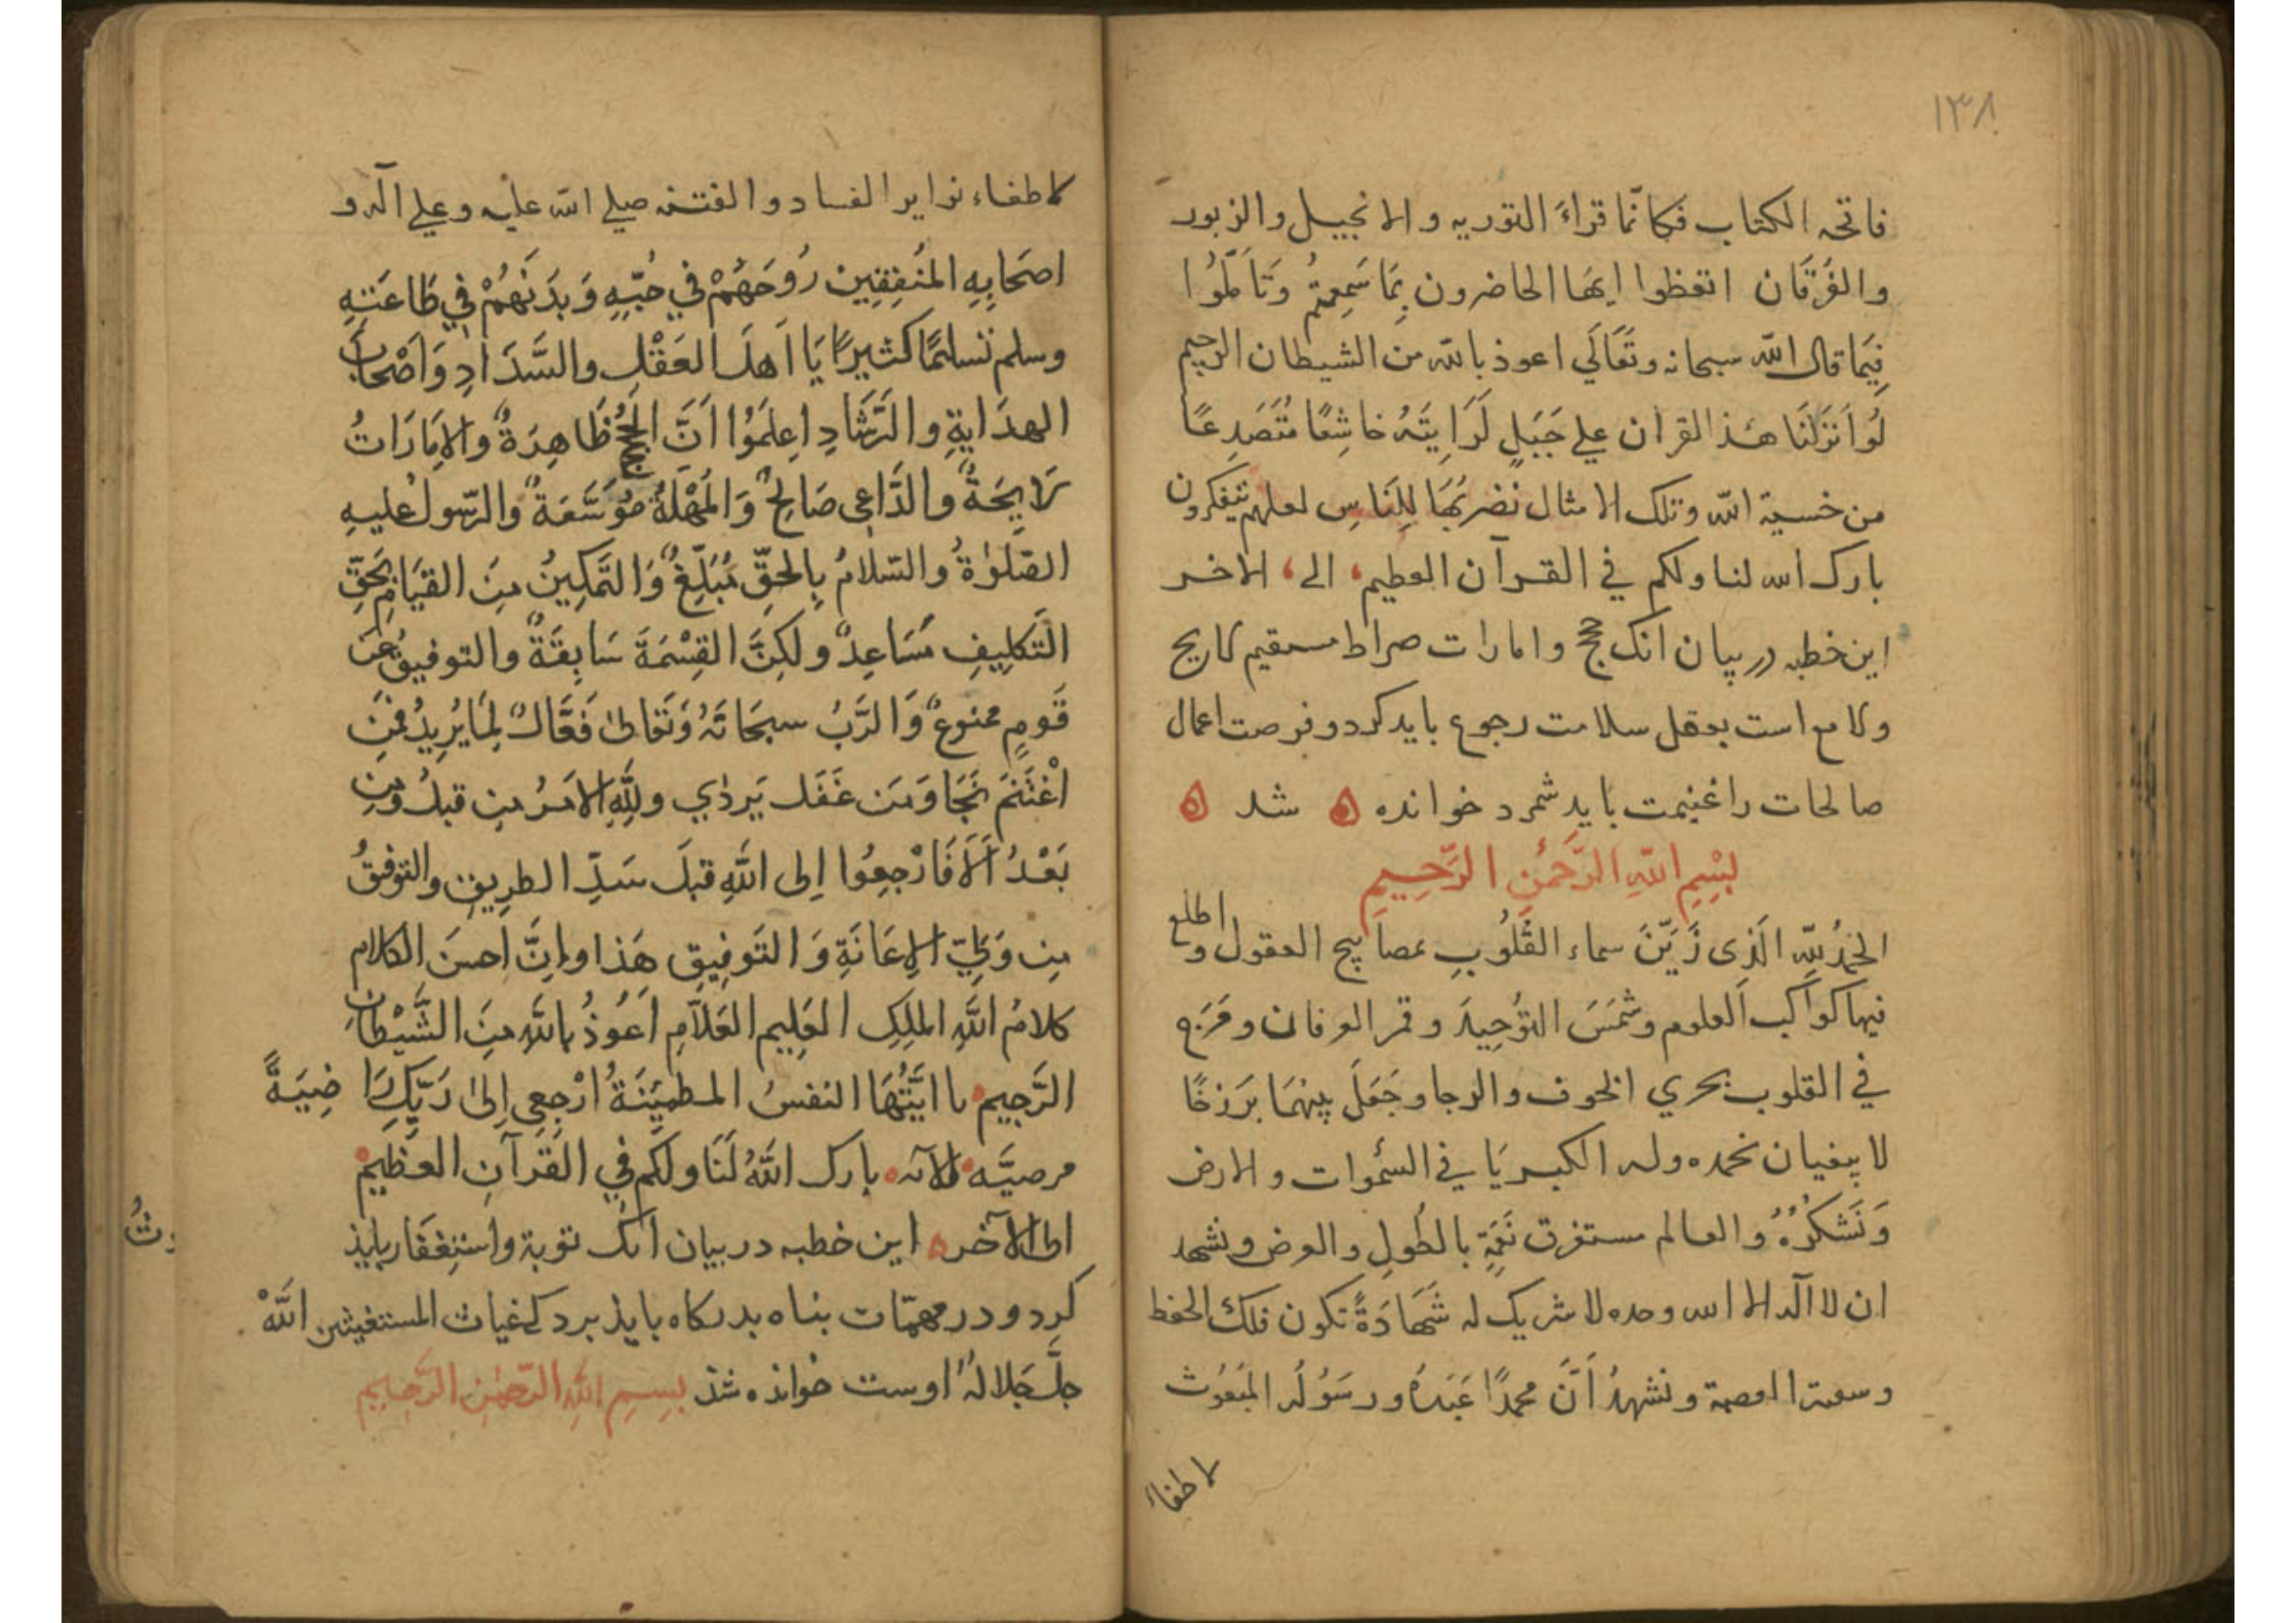 ١٣٨
فاتحه الكتاب فكانّما قراءَ التوريه و الانجيل والزبور
والفُرقَان اتعظوا ايهَا الحاضرون بِمَا سَمِعتُم وَتَامَّلُوا
فِيَما قال اللّه سبحانه وتَعَالَي اعوذ باللّه من الشيطان الرجيم
لَو اَنزَلنَا هذا القران علي جَبَلٍ لَرَايتَهُ خاشِعًا مُتَصَدِعًا
من خسية اللّه وتلك الامثال نضربُهَا لِلنَاسِ لعلهم يتفكرون
بارك اللّه لنا ولكم في القرآن العظيم الى الاخر
اين خطبه در بيان انك حجج و امارات صراط مستقيم لايح
و لامع است بعقل سلامت رجوع بايد كرد و فرصت اعمال
صالحات را غنيمت بايد شمرد خوانده شد
بِسْمِ اللّهِ الرَّحمٰنِ الرَّحِيمِ
الحَمدُ للّهِ الَذِى زَيَّنَ سماء القَلُوبِ بمصابيح العقول و اطلع
فيها كواكب العلوم وشَمسَ التَوُحِيدَ و قمر العرفان و مَرَج
في القلوب بحري الخوف و الرجا وجَعَلَ بينهمَا بَرَزخًا
لا يبغيان نحمده وله الكبريَا في السمٰوات و الارض
وَنَشكُرُهُ وُالعالم مستغرق نَعَمِهِ بالطُولِ و العرض ونشهد
ان لا اله الا اللّه وحده لا شريك له شَهَادَةً تكون فلك الحفظ
و سعة العصمة و نشهدُ اَنَّ محمدًا عَبَدُهُ و رسَوُلُه المَبعُوث
لاطفاء
لاطفاء نواير الفساد و الفتنه صلي اللّه عليه وعلي آله و
اصَحَابِهِ المُنَفِقِين رُوحَهُمْ في حُبِّهِ وَبدَنَهُمْ في طَاعَتِهِ
وسلم تسليمًا كثيرًا يَا اَهلَ العَقْلِ والسَّدَادِ وَاَصْحَابَ
الهدَايةِ و الرَّشَادِ اِعلَمَوُا اَنَّ الحُجَجَ ظَاهِرَةٌ والاِمَارَاتُ
لَايِحَةٌ والدَّاعِى صَالِحٌ وَالمُهْلَةُ مُوَسَّعَةٌ والرّسولُ عليهِ
الصَّلوٰةُ والسّلامُ بِالحقِّ مُبَلِّغٌ وَالتَمكِينُ مِنَ القيَامِ بِحَقِّ
التَكلِيفِ مُسَاعِدٌ ولكِنَّ القِسْمَةَ سَابِقَةٌ والتوفيقُ عَن
قَومٍ ممنوعٌ وَالرَّبُ سبحَانَهُ وَتعَالىٰ فَعَّالٌ لِمَا يُرِيدُ فمَنِ
اغْتَنَمَ نَجَا وَمَن غَفَلَ يَردٰي وللّهِ الاَمرُ مِن قبلُ ومِن
بَعْدُ اَلَا فَارْجِعُوا اِلى اللّهِ قبلَ سَدِّ الطرِيقِ والتوفيقُ
مِن وَلِيّ الاِعَانَةِ وَ التَوفِيقِ هَذا واِنَّ احسنَ الكلامِ
كلامُ اللّهِ الملِكِ العَلِيمِ العَلَّامِ اَعُوذُ بِاللّهِ مِنَ الشَّيْطَانِ
الرَّجِيم يا ايَّتُهَا النفسُ المطمئِنَةُ ارْجِعِى اِلىٰ رَبِّكِ رَاضِيَةً
مرضيَّه الآيه بارك اللّهُ لَنَا ولكُم في القُرآنِ العظِيم
الى الآخر اين خطبه در بيان انك توبة و استِغفَار بايذ
كرد و در مهمّات بناه بدركاه بايذ برد كه غياث المستغيثين اللّه
جلَّ جَلالهُ اوست خوانذه شذ بِسِمِ اللّهِ الرّحمٰنِ الرَّحِيمِ